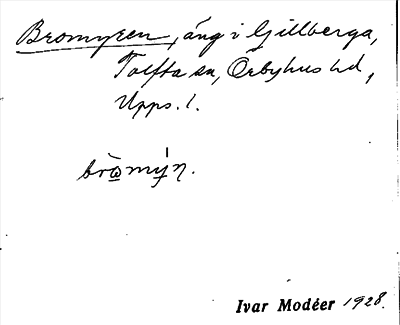 Bromyren, äng i Gillberga,
Tolfta sn, Örbyhus hd,
Upps. l.
bròmy̍n.
Ivar Modéer 1928.